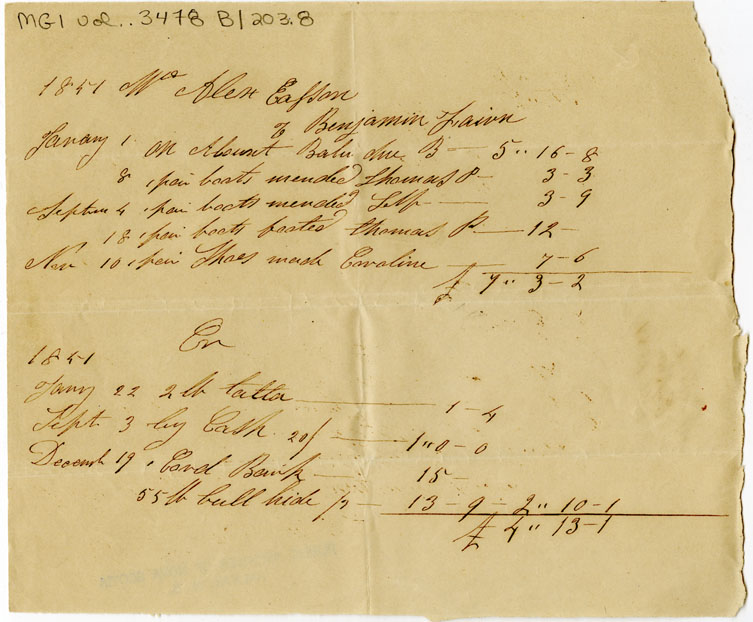 MG1 vol.. 3478 B/203.8
1851 Mr Alex Easson
To Benjamin
January 1 on Acount Balu due B — 5 " 16 - 8
8 1 pair boots mended Thomas P — 3 - 3
Septem 4 1 pair boots mended Self — 3 - 9
18 1 pair boots footed thomas P — 12 -
Nov 10 1 pair Shoes made Caroline — 7 - 6
£ 7 " 3 - 2
Cr
1851
Jany 22 2 lb — 1 - 4
Sept 3 by Cash 20/ — 1 " 0 - 0
Decemb 19 1 Cord Bark — 15 -
55 lb bull hide — 13 - 9 - 2 " 10 - 1
£ 4 " 13 - 1